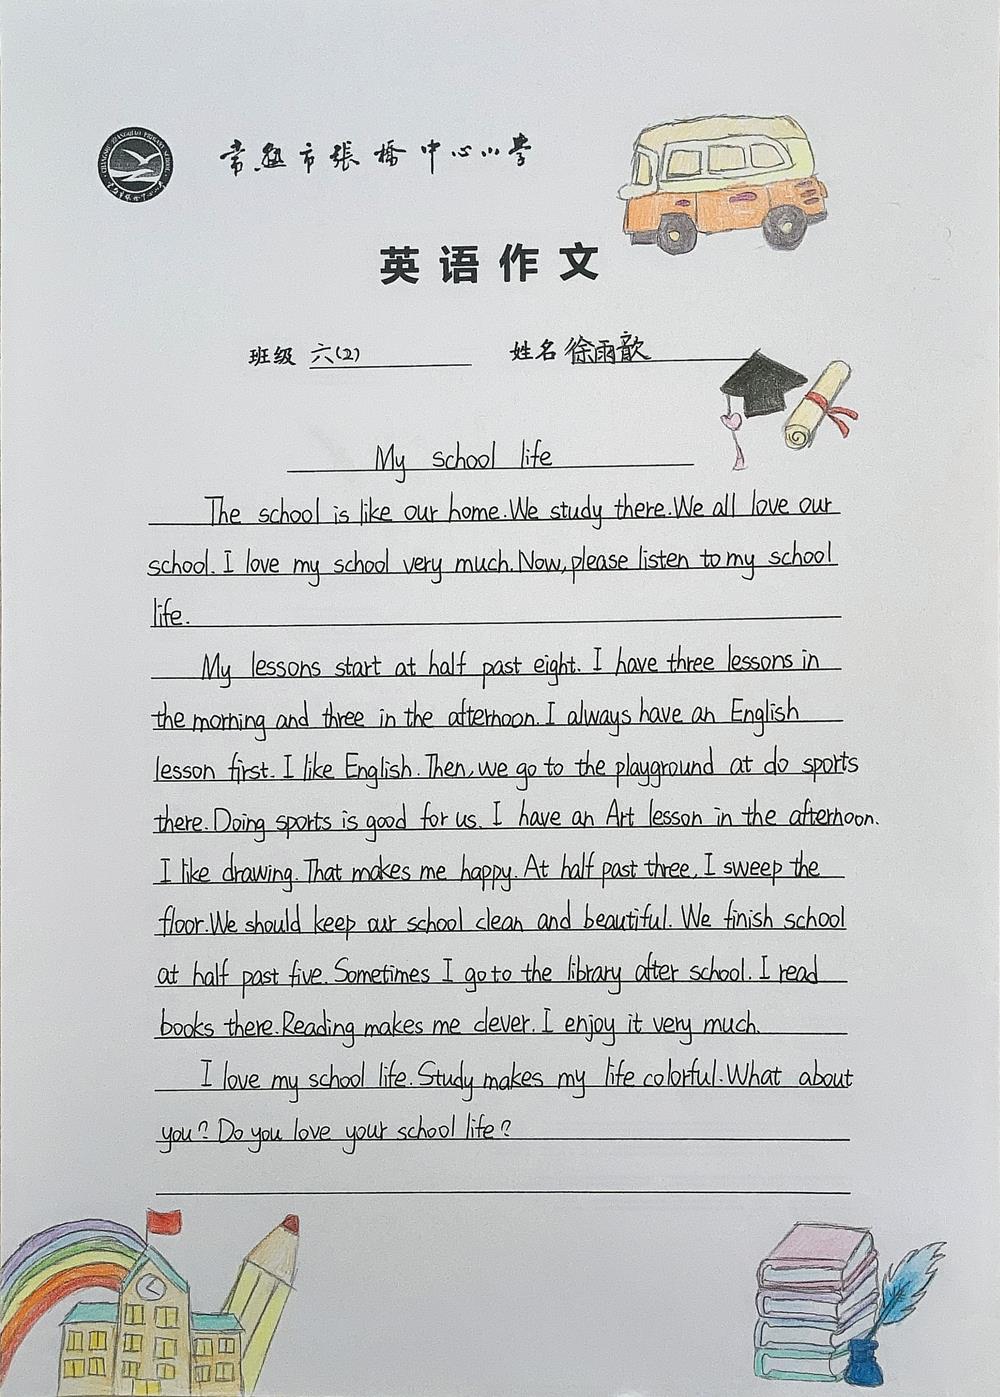 常熟市張橋中心小学
英语作文
班级 六(2) 姓名 徐雨歆
My school life
The school is like our home.We study there.We all love our
school. I love my school very much.Now,please listen to my school
life.
My lessons start at half past eight. I have three lessons in
the morning and three in the afternoon. I always have an English
lesson first. I like English. Then, we go to the playground at do sports
there. Doing sports is good for us. I have an Art lesson in the afternoon.
I like drawing. That makes me happy. At half past three, I sweep the
floor.We should keep our school clean and beautiful. We finish school
at half past five. Sometimes I go to the library after school. I read
books there.Reading makes me clever. I enjoy it very much.
I love my school life. Study makes my life colorful. What about
you? Do you love your school life?